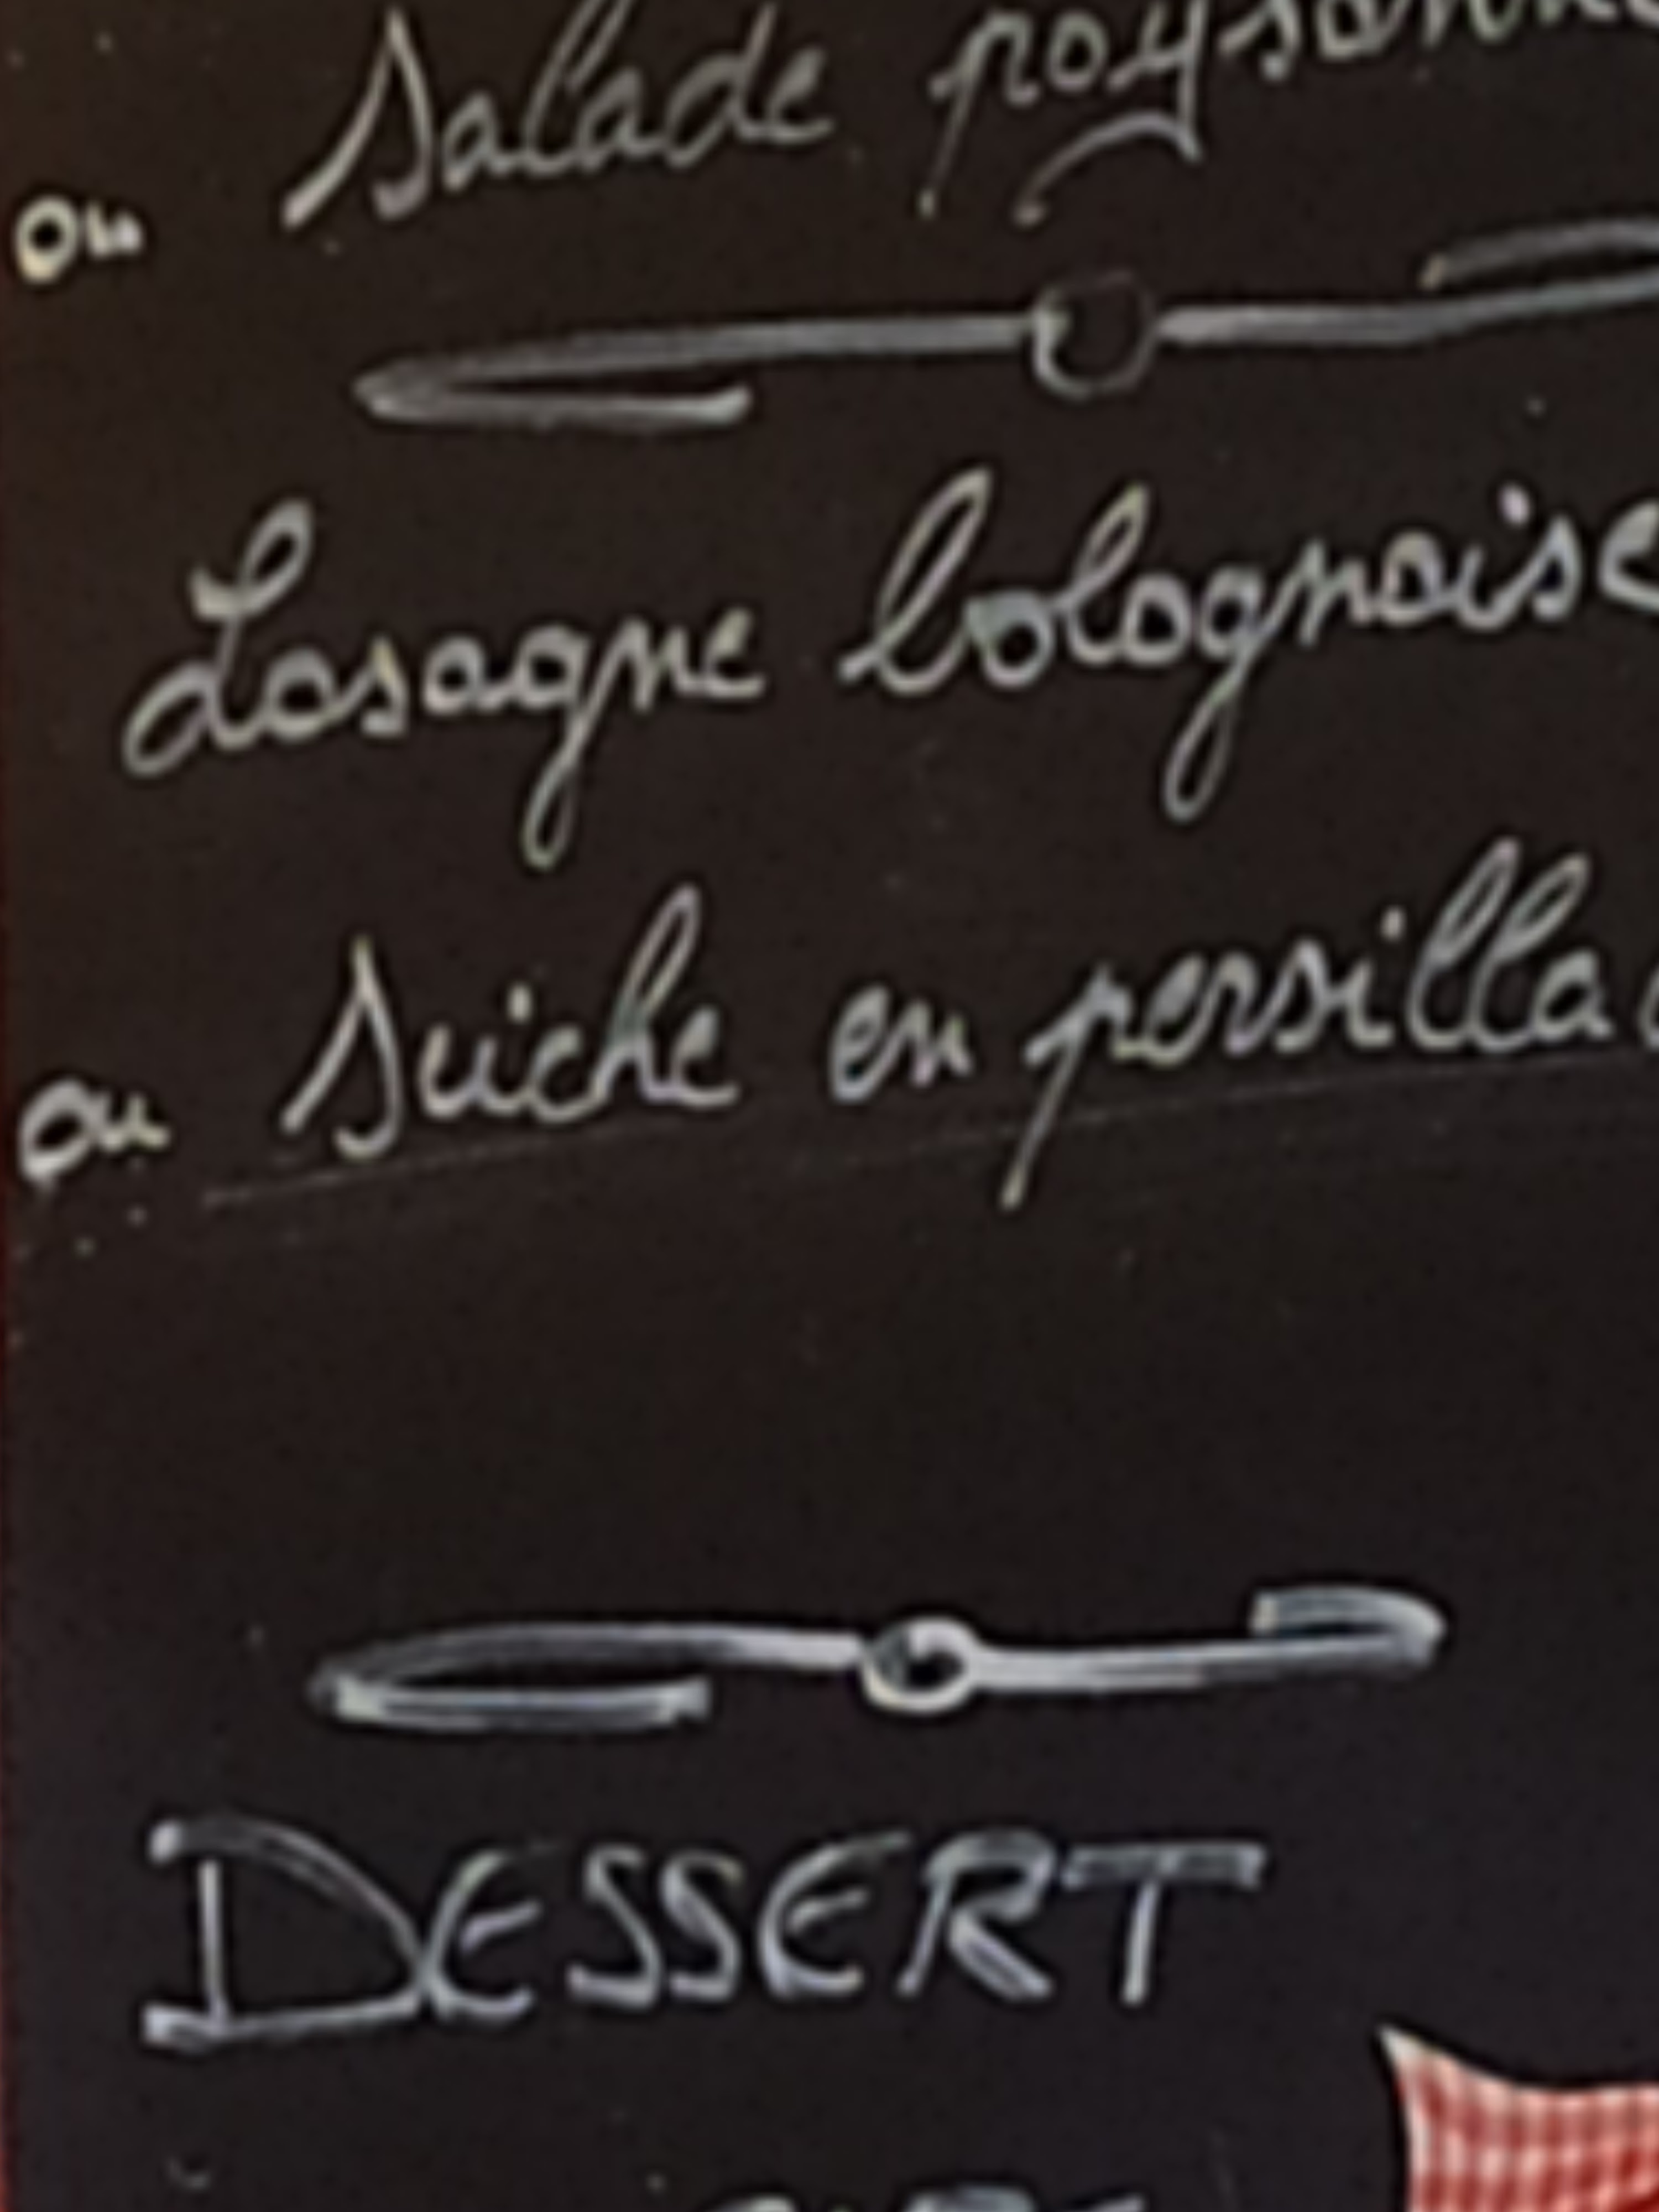 ou Salade paysanne
Lasagne bolognaise
ou Seiche en persillad
DESSERT